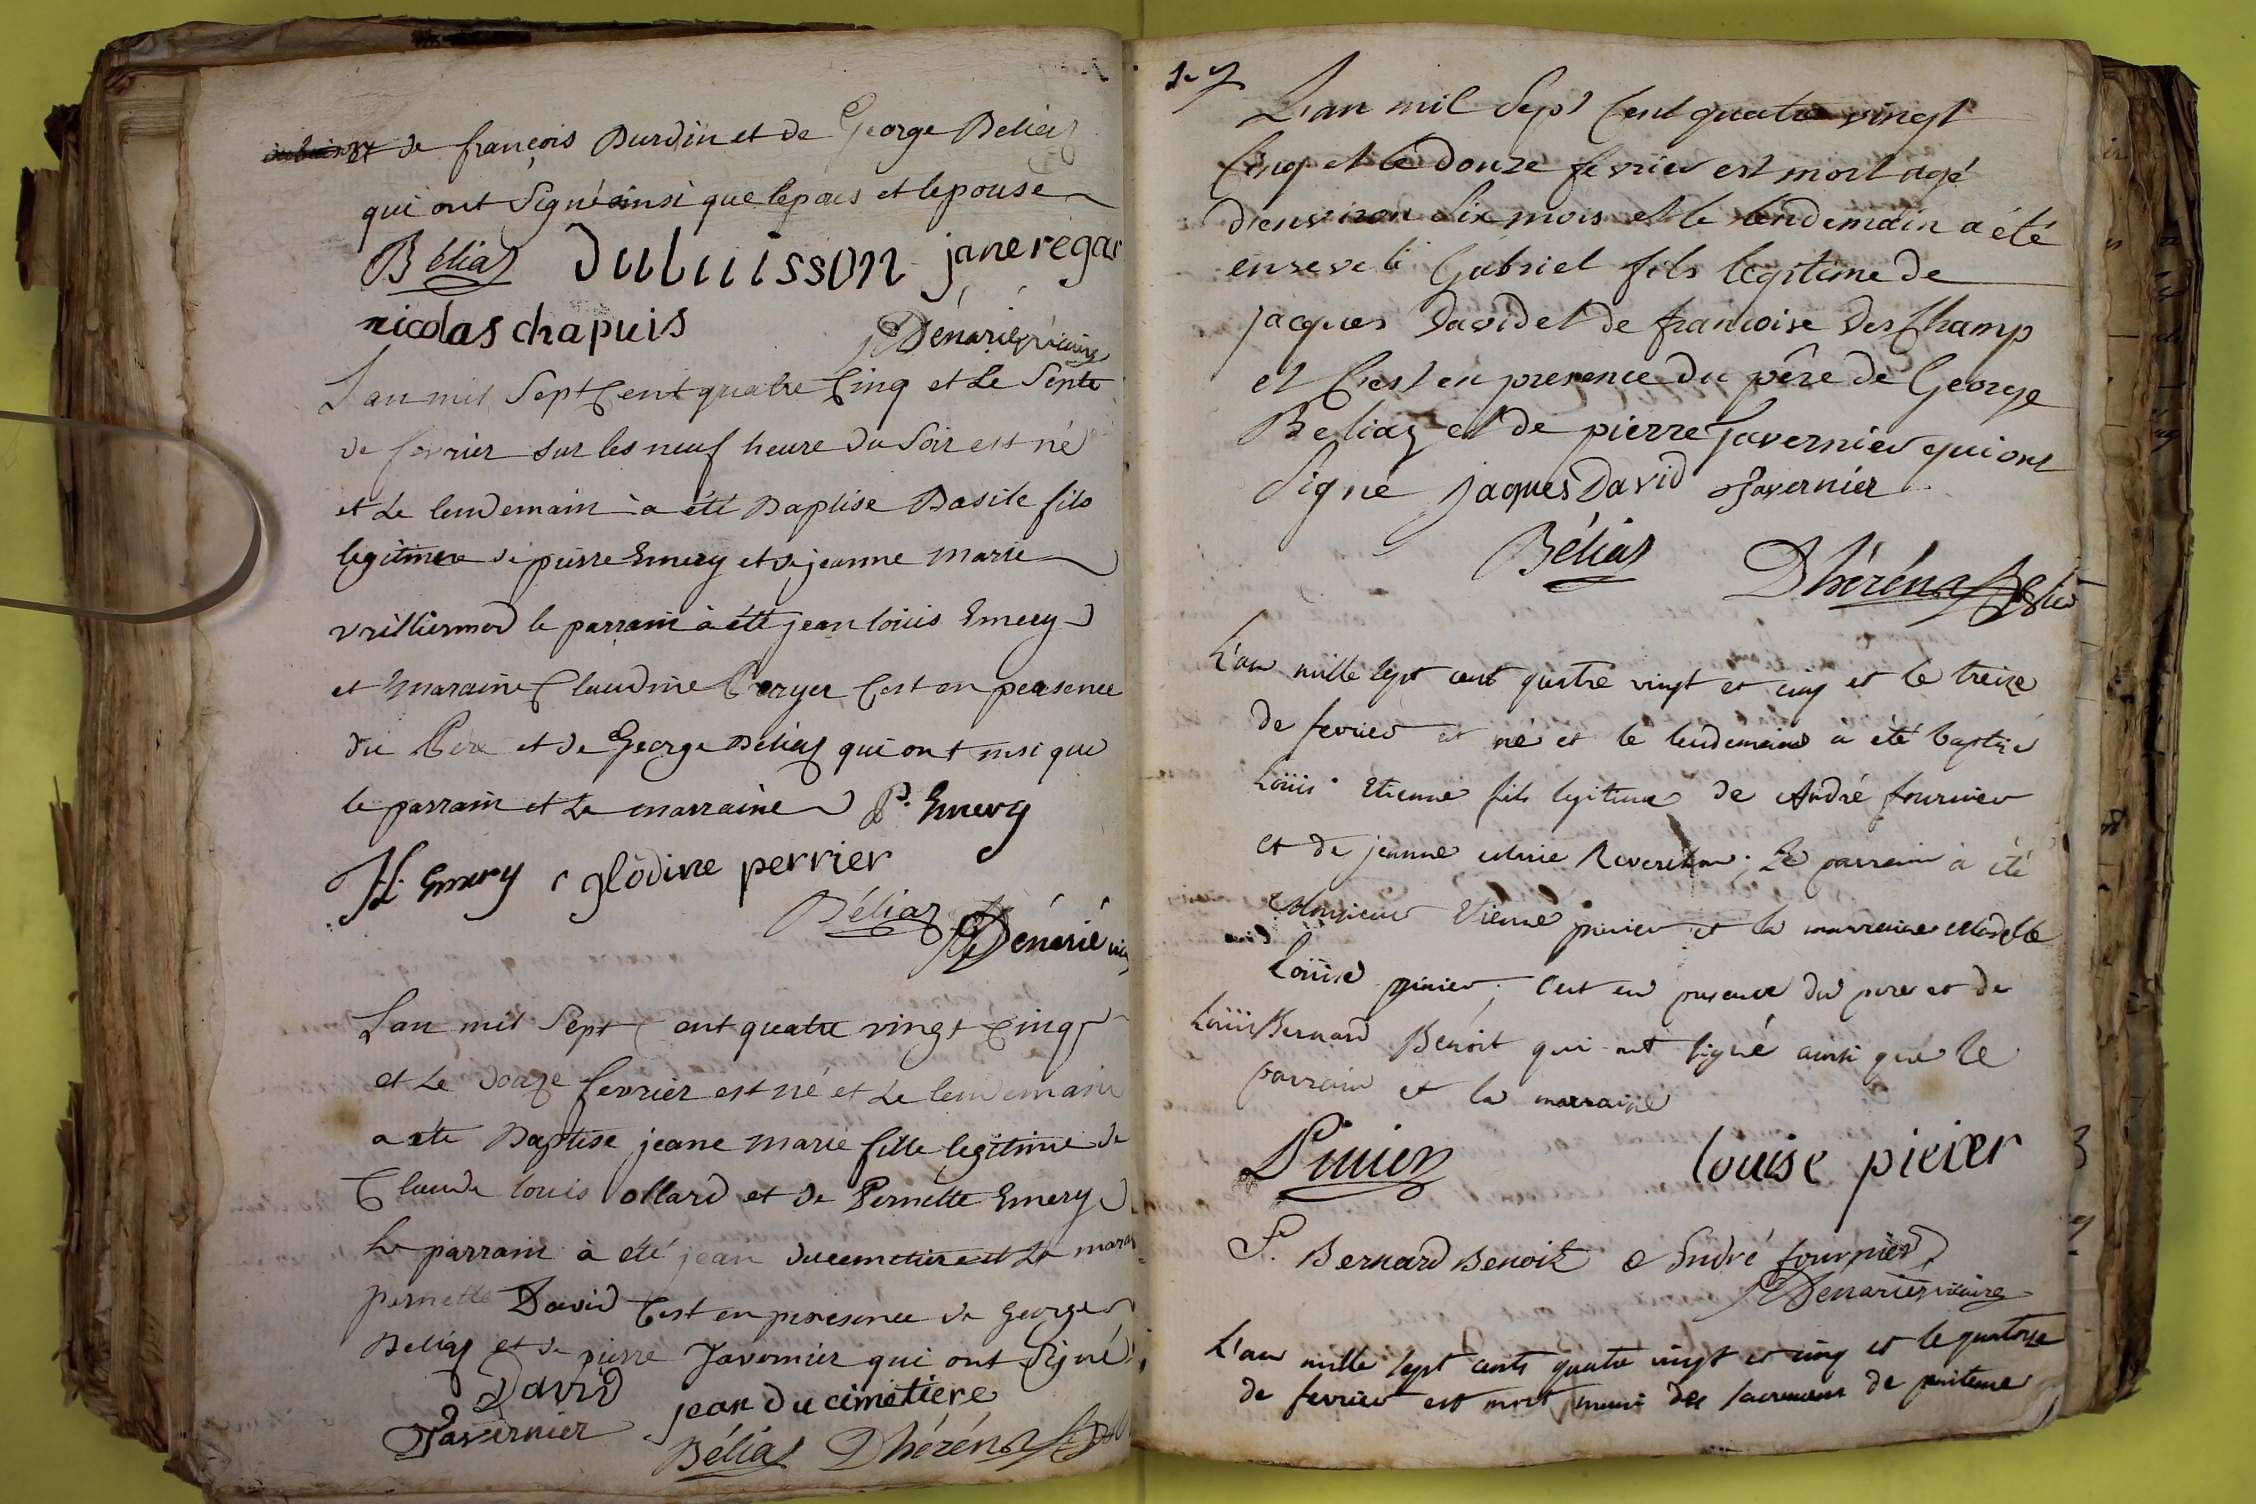 et de françois Durdin et de George Béliaz
qui ont Signé ainsi que lepous et lepouse
Béliaz dubuisson jane regar
nicolas chapuis Dénarié vicaire
Lan mil Sept Cent quatre Cinq et Le Septe
de fevrier sur les neuf heure du Soir est né
et Le lendemain à été Baptise Basile fils
legitime de pierre Emery et de jeanne Marie
vrilliermod le parrain à été jean louis Emery
et Maraine Claudine Peryer C'est en peresence
du Pere et de George Béliaz qui ont insi que
le parrain et La marraine P. Emery
H. Emery glodine perrier
Béliaz Dénarié vic
Lan mil Sept Cent quatre vingt Cinq
et Le douze fevrier est né et Le lendemain
a été Baptise jeane Marie fille legitime de
Claude louis ollard et de Pernette Emery
Le parrain à été jean ducemetiere et La mara
pernette David C'est en peresence de George
Beliaz et de pierre Tavernier qui ont Signé
David jean du cimetiere
Tavernier Béliaz Dhéréns
L'an mil Sept Cent quatre vingt
Cinq et le douze fevrier est mort agé
d'environ Six mois et le lendemain a été
enseveli Gabriel fils legitime de
jacques David et de francoise Des Champ
et C'est en presence du père de George
Beliaz et de pierre Tavernier qui ont
Signé jaques David Tavernier
Béliaz Dhéréns
L'an mille sept cent quatre vingt et cinq et le treize
de fevrier est né et le lendemain a été baptisé
Loüis Etienne fils legitime de André fournier
et de jeanne Marie Reverchon; Le parrain à été
Monsieur Etienne pinier et la marraine Madelle
Loüise pinier; C'est en presence du pere et de
Loüis Bernard Benoit qui ont signé ainsi que le
parrain et la marraine
Pinier louise pieier
Bernard Benoit André fournier
Dénarié vicaire
L'an mille sept cents quatre vingt et cinq et le quatorze
de fevrier est mort muni des sacremens de penitence